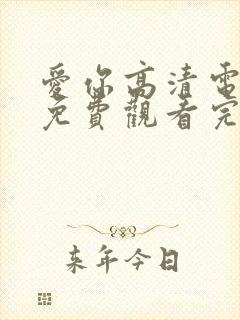 愛你高清電
免費觀看完
来年今日